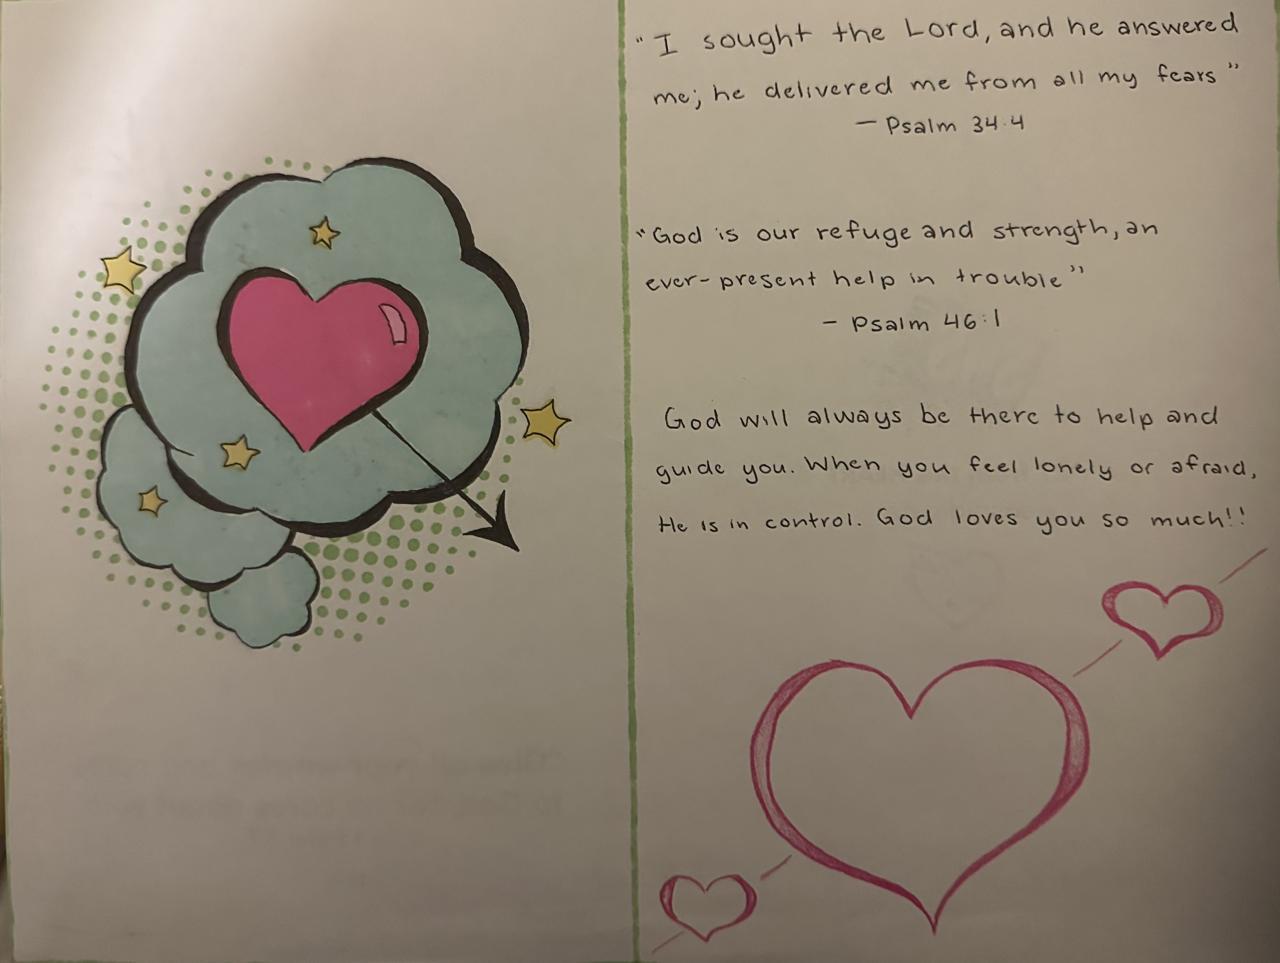 "I sought the Lord, and he answered
me; he delivered me from all my fears"
— Psalm 34:4
"God is our refuge and strength, an
ever-present help in trouble"
— Psalm 46:1
God will always be there to help and
guide you. When you feel lonely or afraid,
He is in control. God loves you so much!!